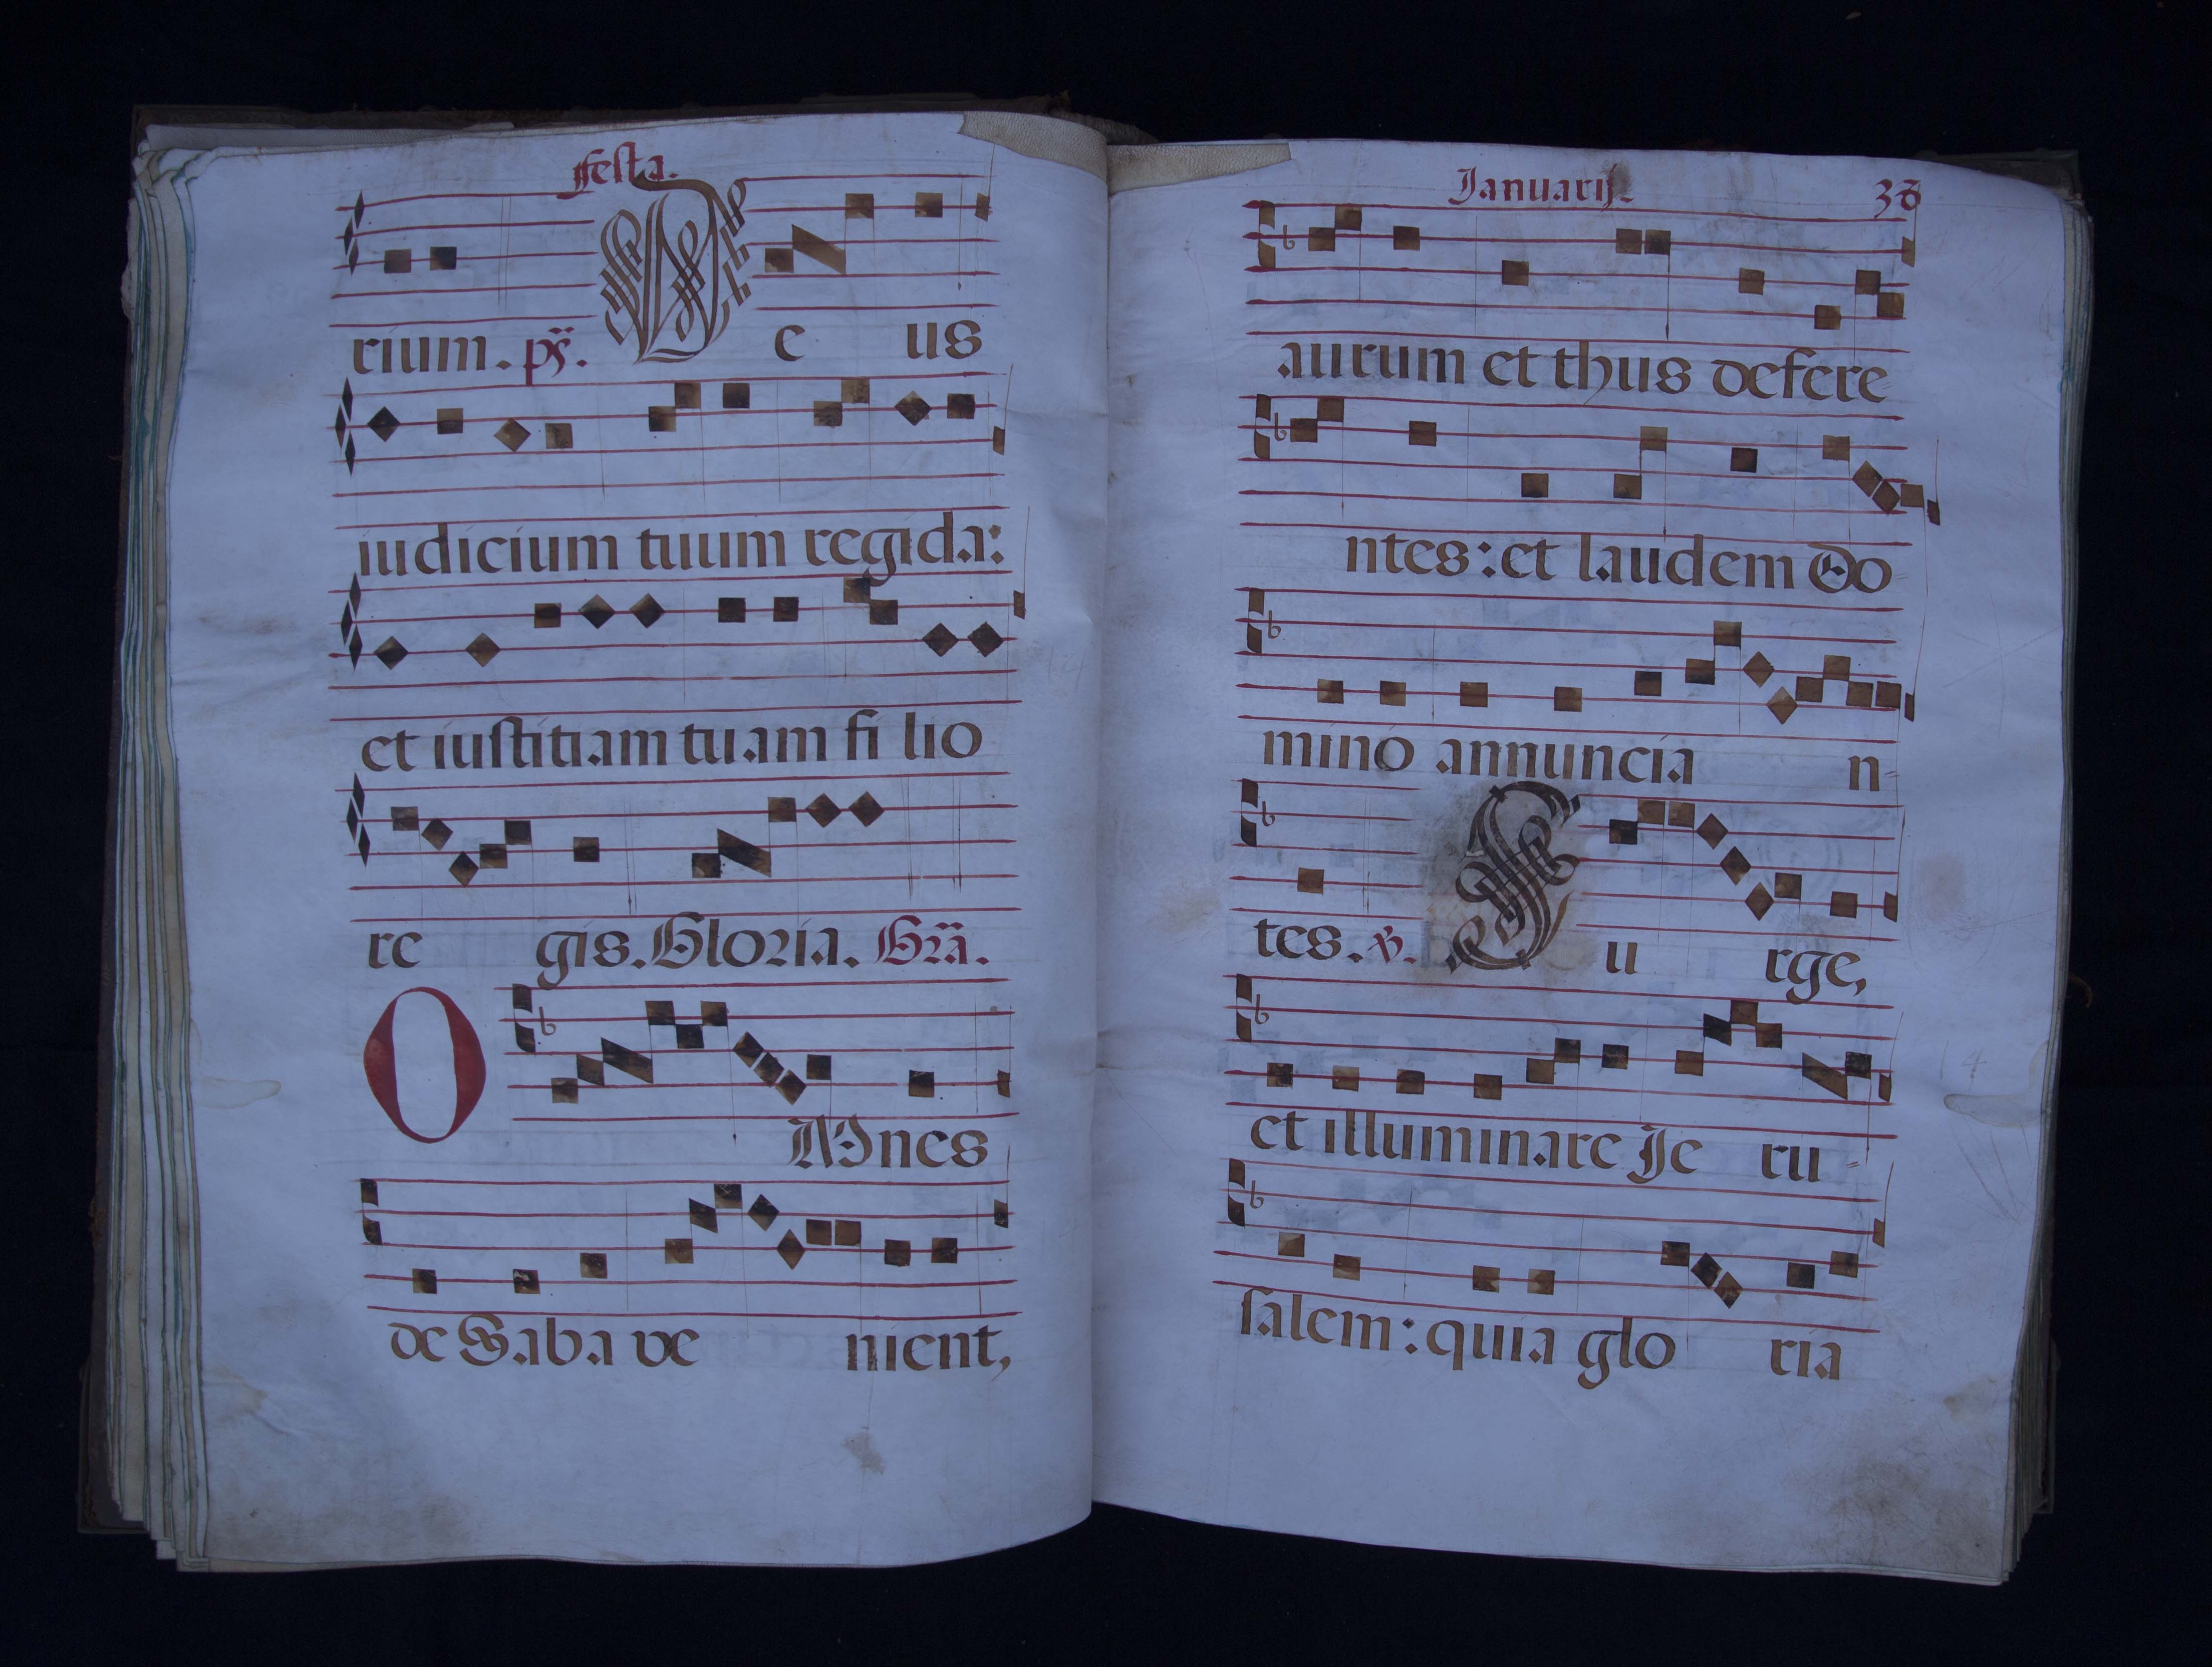 festa.
rium. ps. De us
iudicium tuum regi da:
et iustitiam tuam fi lio
re gis. Gloria. Gra.
OMnes
de Saba ve nient,
Januarij. 38
aurum et thus defere
ntes: et laudem Do
mino annuncia n-
tes. V. Su rge,
et illuminare Je ru-
salem: quia glo ria